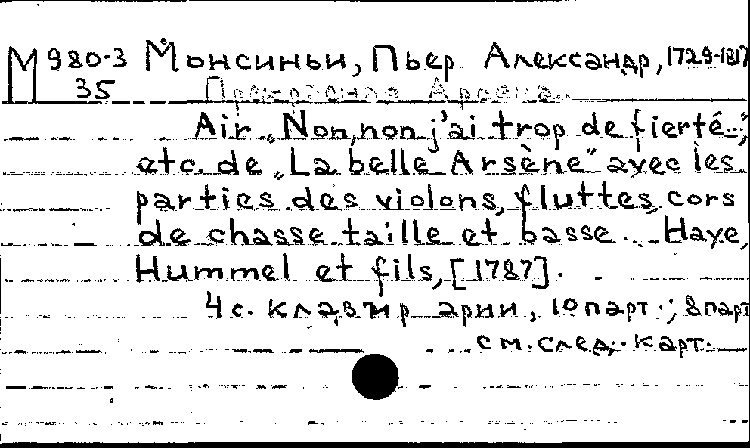 М 980-3 Монсиньи, Пьер Александр, 1729-1817
35 Прекрасная Арсена.
Air „Non, non j'ai trop de fierté..."
etc. de „La belle Arsène" avec les
parties des violons, fluttes, cors
de chasse taille et basse... Haye,
Hummel et fils, [1787].
4 с. клавир арии, 10 парт.; 8 парт
см. след. карт.